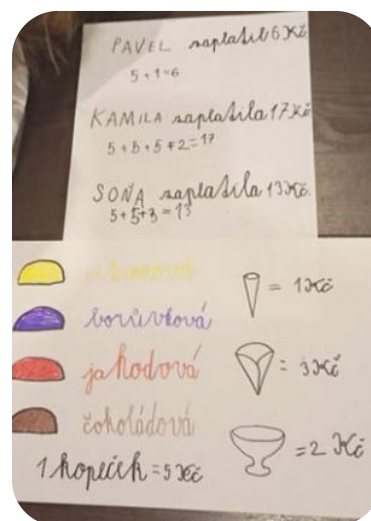 PAVEL zaplatil 6 Kč.
5 + 1 = 6
KAMILA zaplatila 17 Kč
5 + 5 + 5 + 2 = 17
SOŇA zaplatila 13 Kč.
5 + 5 + 3 = 13
citronová
= 1 Kč
borůvková
jahodová
= 3 Kč
čokoládová
= 2 Kč
1 kopeček = 5 Kč